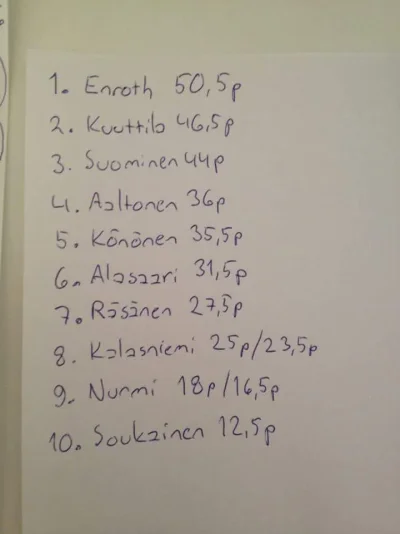 1. Enroth 50,5p
2. Kuuttila 46,5p
3. Suominen 44p
4. Aaltonen 36p
5. Könönen 35,5p
6. Alasaari 31,5p
7. Räsänen 27,5p
8. Kalasniemi 25p/23,5p
9. Nurmi 18p/16,5p
10. Soukainen 12,5p